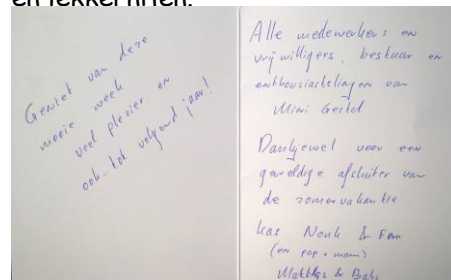 en lekker
Geniet van deze
mooie week
veel plezier en
ook tot volgend jaar!
Alle medewerkers en
vrijwilligers, bestuur en
enthousiastelingen van
Mini Gestel
Dankjewel voor een
geweldige afsluiter van
de zomervakantie
Nonk & Fem
(en pap + mam)